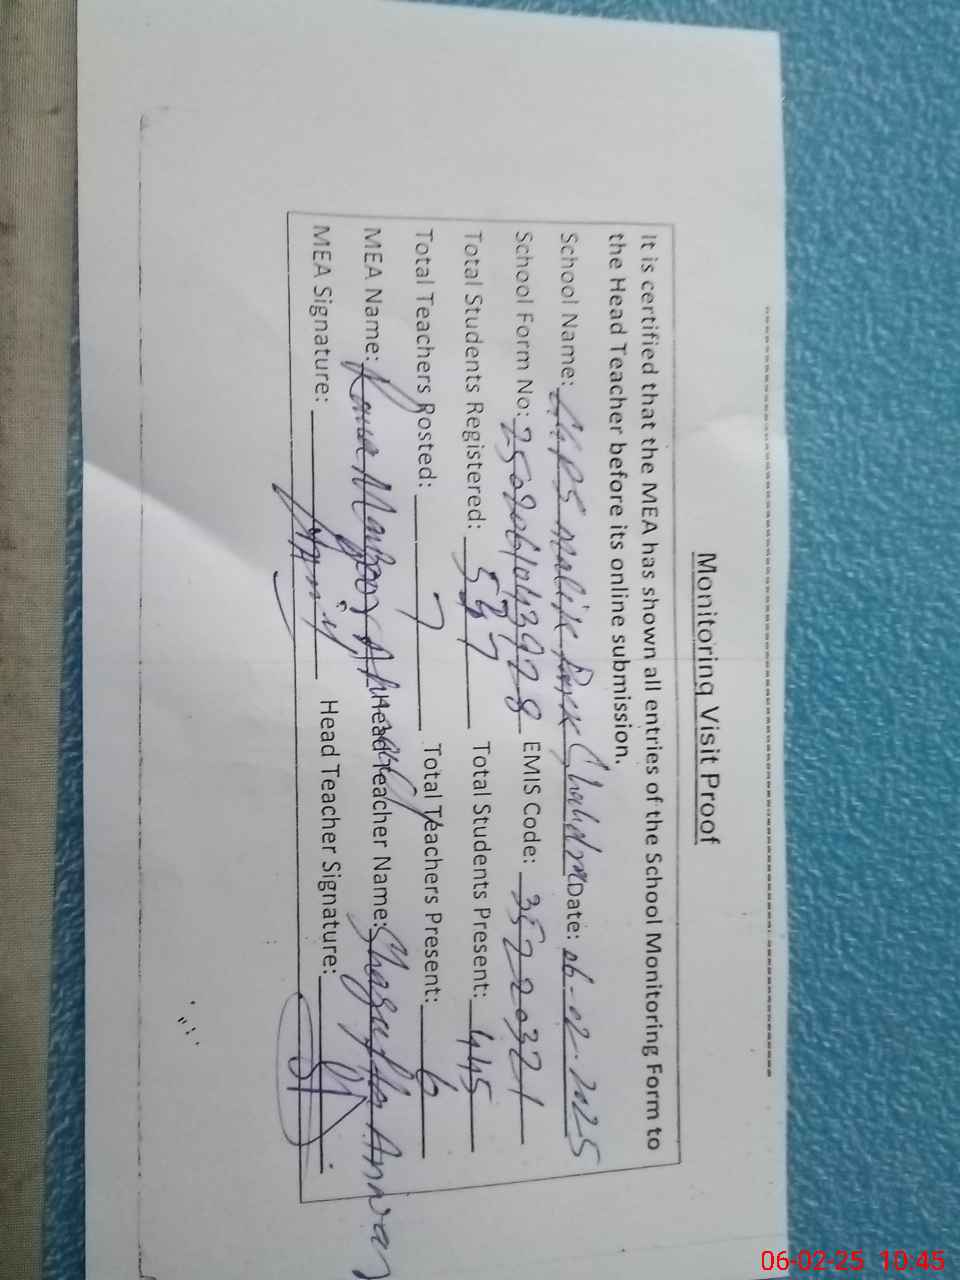 Monitoring Visit Proof
It is certified that the MEA has shown all entries of the School Monitoring Form to
the Head Teacher before its online submission.
School Name: Malik Park Date: 06-02-2025
School Form No: EMIS Code: 35220321
Total Students Registered: 537 Total Students Present: 445
Total Teachers Posted: 7 Total Teachers Present: 6
MEA Name: Rana Maqbool Ahmad Head Teacher Name: Shagufta Anwar
MEA Signature: Head Teacher Signature:
06-02-25 10:45